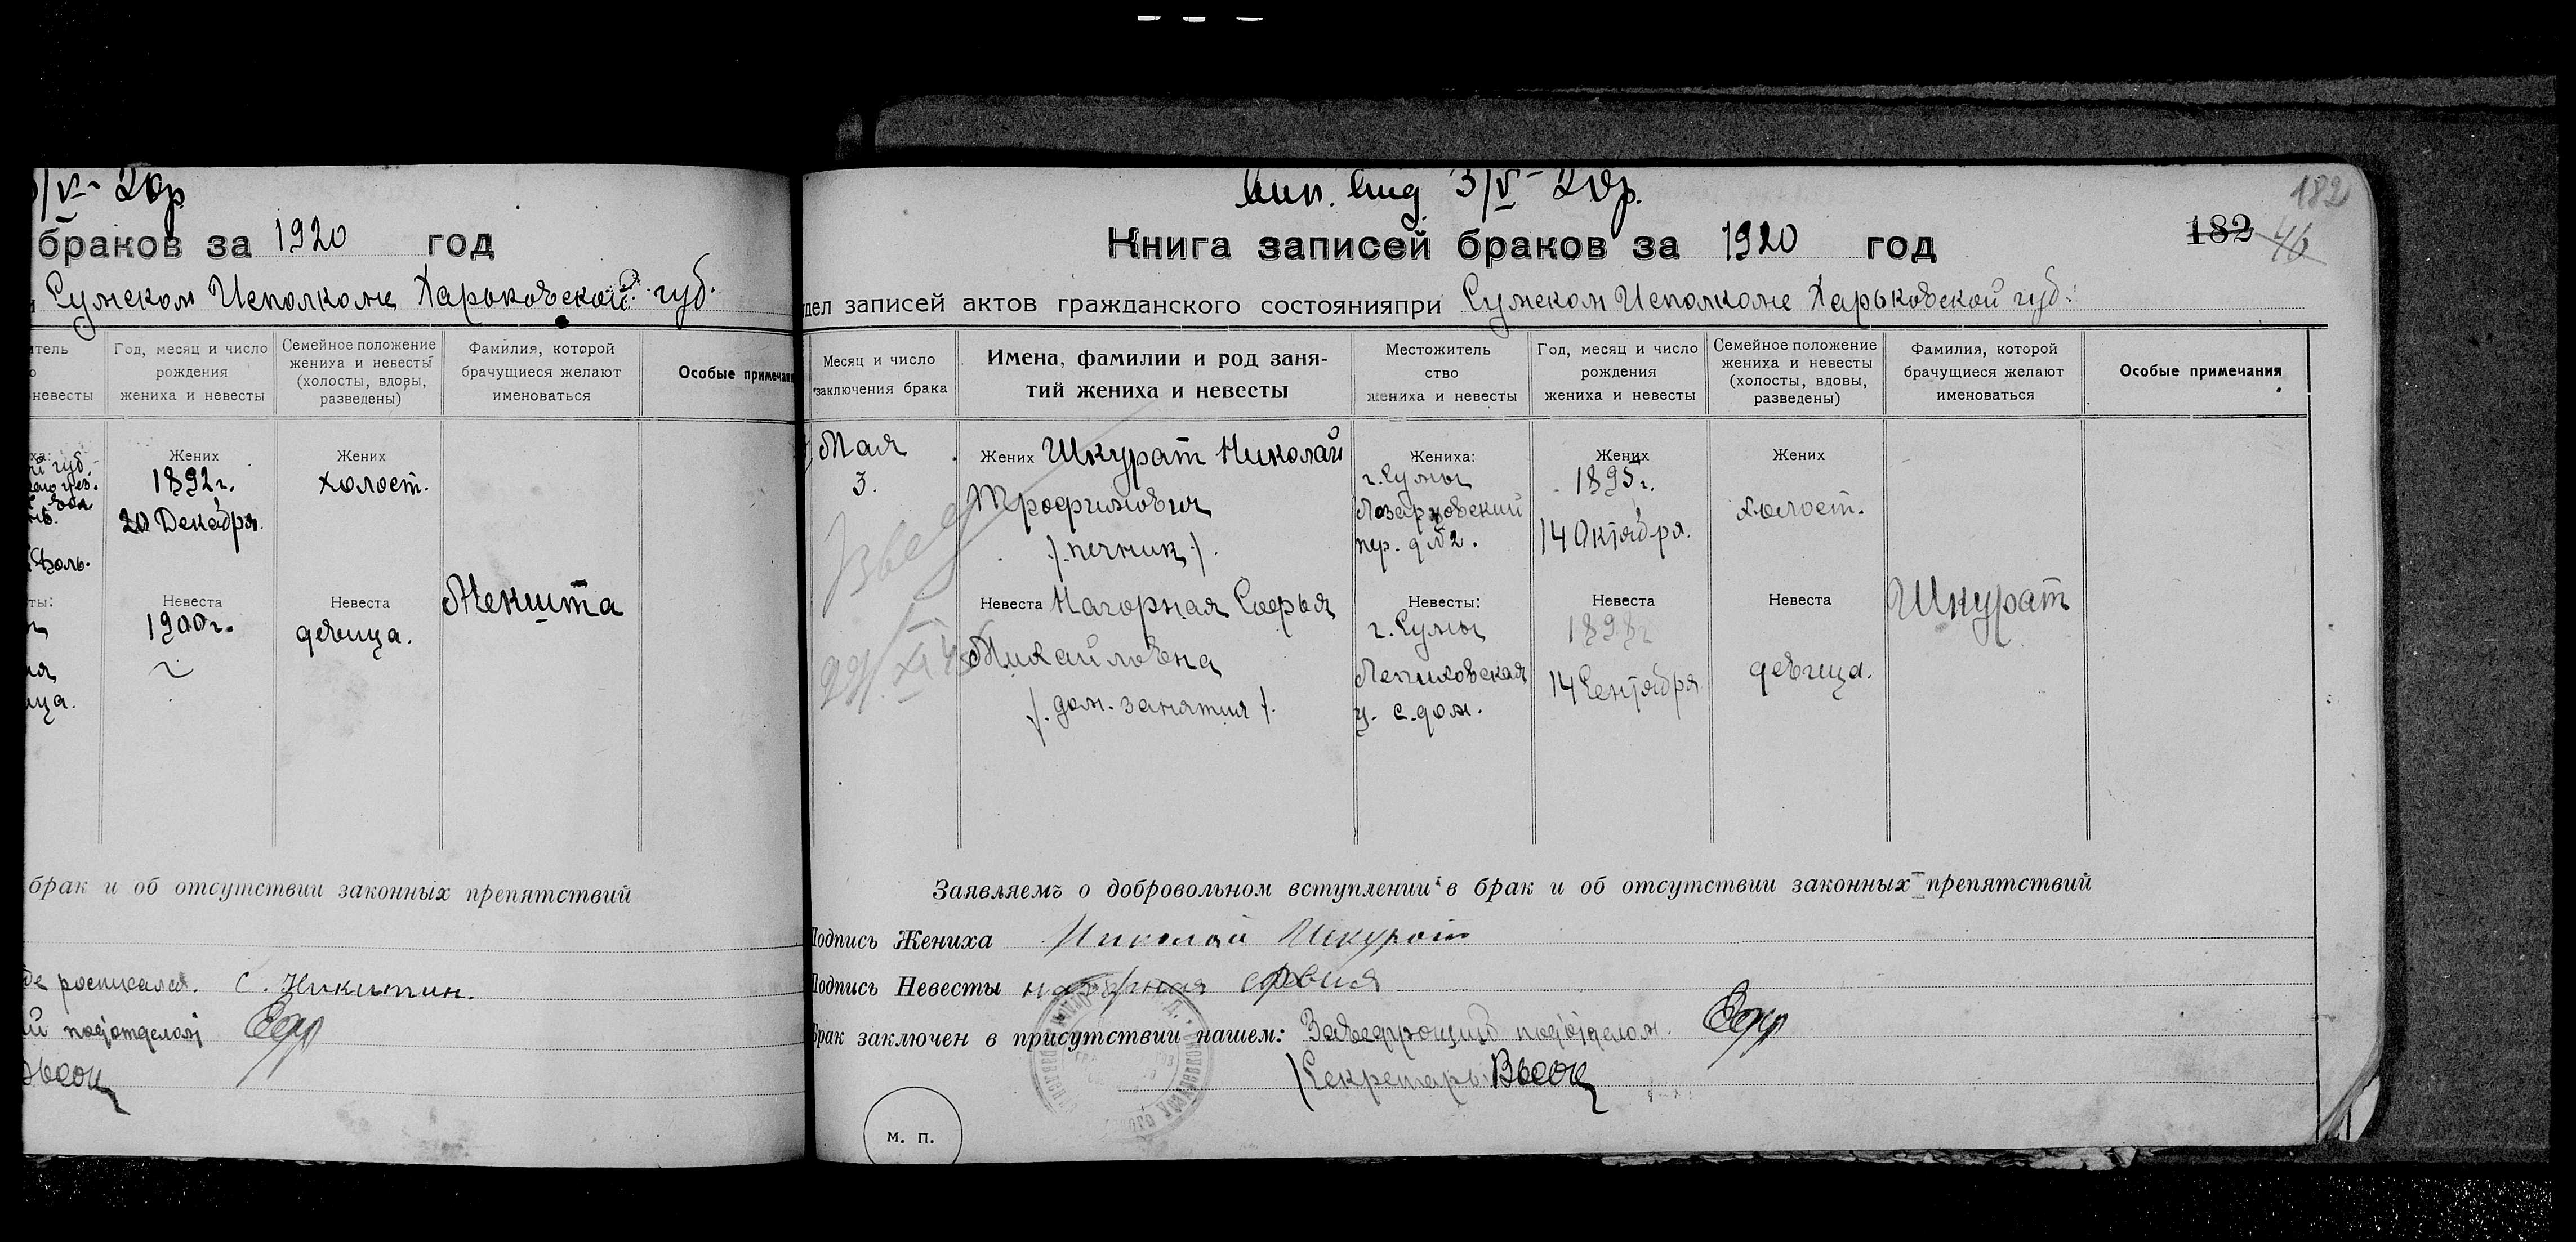 /V- 20г.
браков за 1920 год
Сумском Исполкоме Харьковской губ.
Год, месяц и число рождения жениха и невесты
Семейное положение жениха и невесты (холосты, вдовы, разведены)
Фамилия, которой брачущиеся желают именоваться
Особые примечан
невесты
Жених
1892 г.
20 Декабря.
Жених
холост.
Невеста
1900 г.
Невеста
девица.
брак и об отсутствии законных препятствий
росписался. С. Никитин.
подотделом
182
3/V- 20г.
Книга записей браков за 1920 год
182 46
дел записей актов гражданского состоянияпри Сумском Исполкоме Харьковской губ.
Месяц и число заключения брака
Имена, фамилии и род занятий жениха и невесты
Местожительство жениха и невесты
Год, месяц и число рождения жениха и невесты
Семейное положение жениха и невесты (холосты, вдовы, разведены)
Фамилия, которой брачущиеся желают именоваться
Особые примечания
Мая
3.
Жених Шкурат Николай
Трофимович
/.печник/.
Жениха:
г. Сумы
пер. д № 2.
Жених
1895 г.
14 Октября.
Жених
холост.
Невеста Нагорная Софья
Михайловна
/. дом. занятия /.
Невесты:
г. Сумы
ул. с. дом.
Невеста
1898 г
14 Сентября
Невеста
девица.
Шкурат
Заявляемъ о добровольном вступлении в брак и об отсутствии законных препятствий
Подпись Жениха Николай Шкурат
Подпись Невесты нагорная софия
Брак заключен в присутствии нашем: Заведующий подотделом.
Секретарь
м. п.